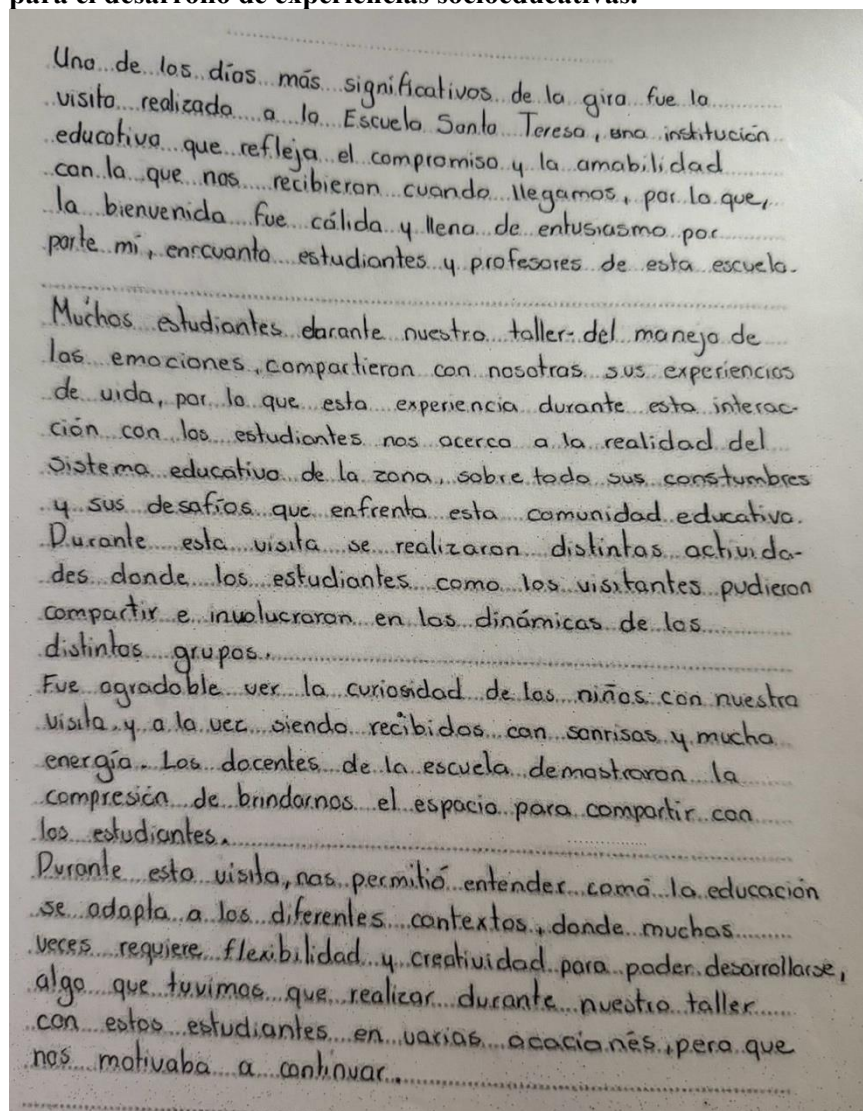 para el desarrollo de experiencias socioeducativas.
Uno de los días más significativos de la gira fue la
visita realizada a la Escuela Santa Teresa, una institución
educativa que refleja el compromiso y la amabilidad
con la que nos recibieron cuando llegamos, por lo que,
la bienvenida fue cálida y llena de entusiasmo por
parte mí, encuanto estudiantes y profesores de esta escuela.
Muchos estudiantes durante nuestro taller del manejo de
las emociones, compartieron con nosotras sus experiencias
de vida, por lo que esta experiencia durante esta interac-
ción con los estudiantes nos acerco a la realidad del
sistema educativo de la zona, sobre todo sus constumbres
y sus desafíos que enfrenta esta comunidad educativa.
Durante esta visita se realizaron distintas activida-
des donde los estudiantes como los visitantes pudieron
compartir e involucraron en las dinámicas de los
distintos grupos.
Fue agradable ver la curiosidad de los niños con nuestra
visita y a la vez siendo recibidos con sonrisas y mucha
energía. Los docentes de la escuela demostraron la
compresión de brindarnos el espacio para compartir con
los estudiantes.
Durante esta visita, nos permitió entender como la educación
se adapta a los diferentes contextos, donde muchas
veces requiere flexibilidad y creatividad para poder desarrollarse,
algo que tuvimos que realizar durante nuestro taller
con estos estudiantes en varias acaciones, pero que
nos motivaba a continuar.